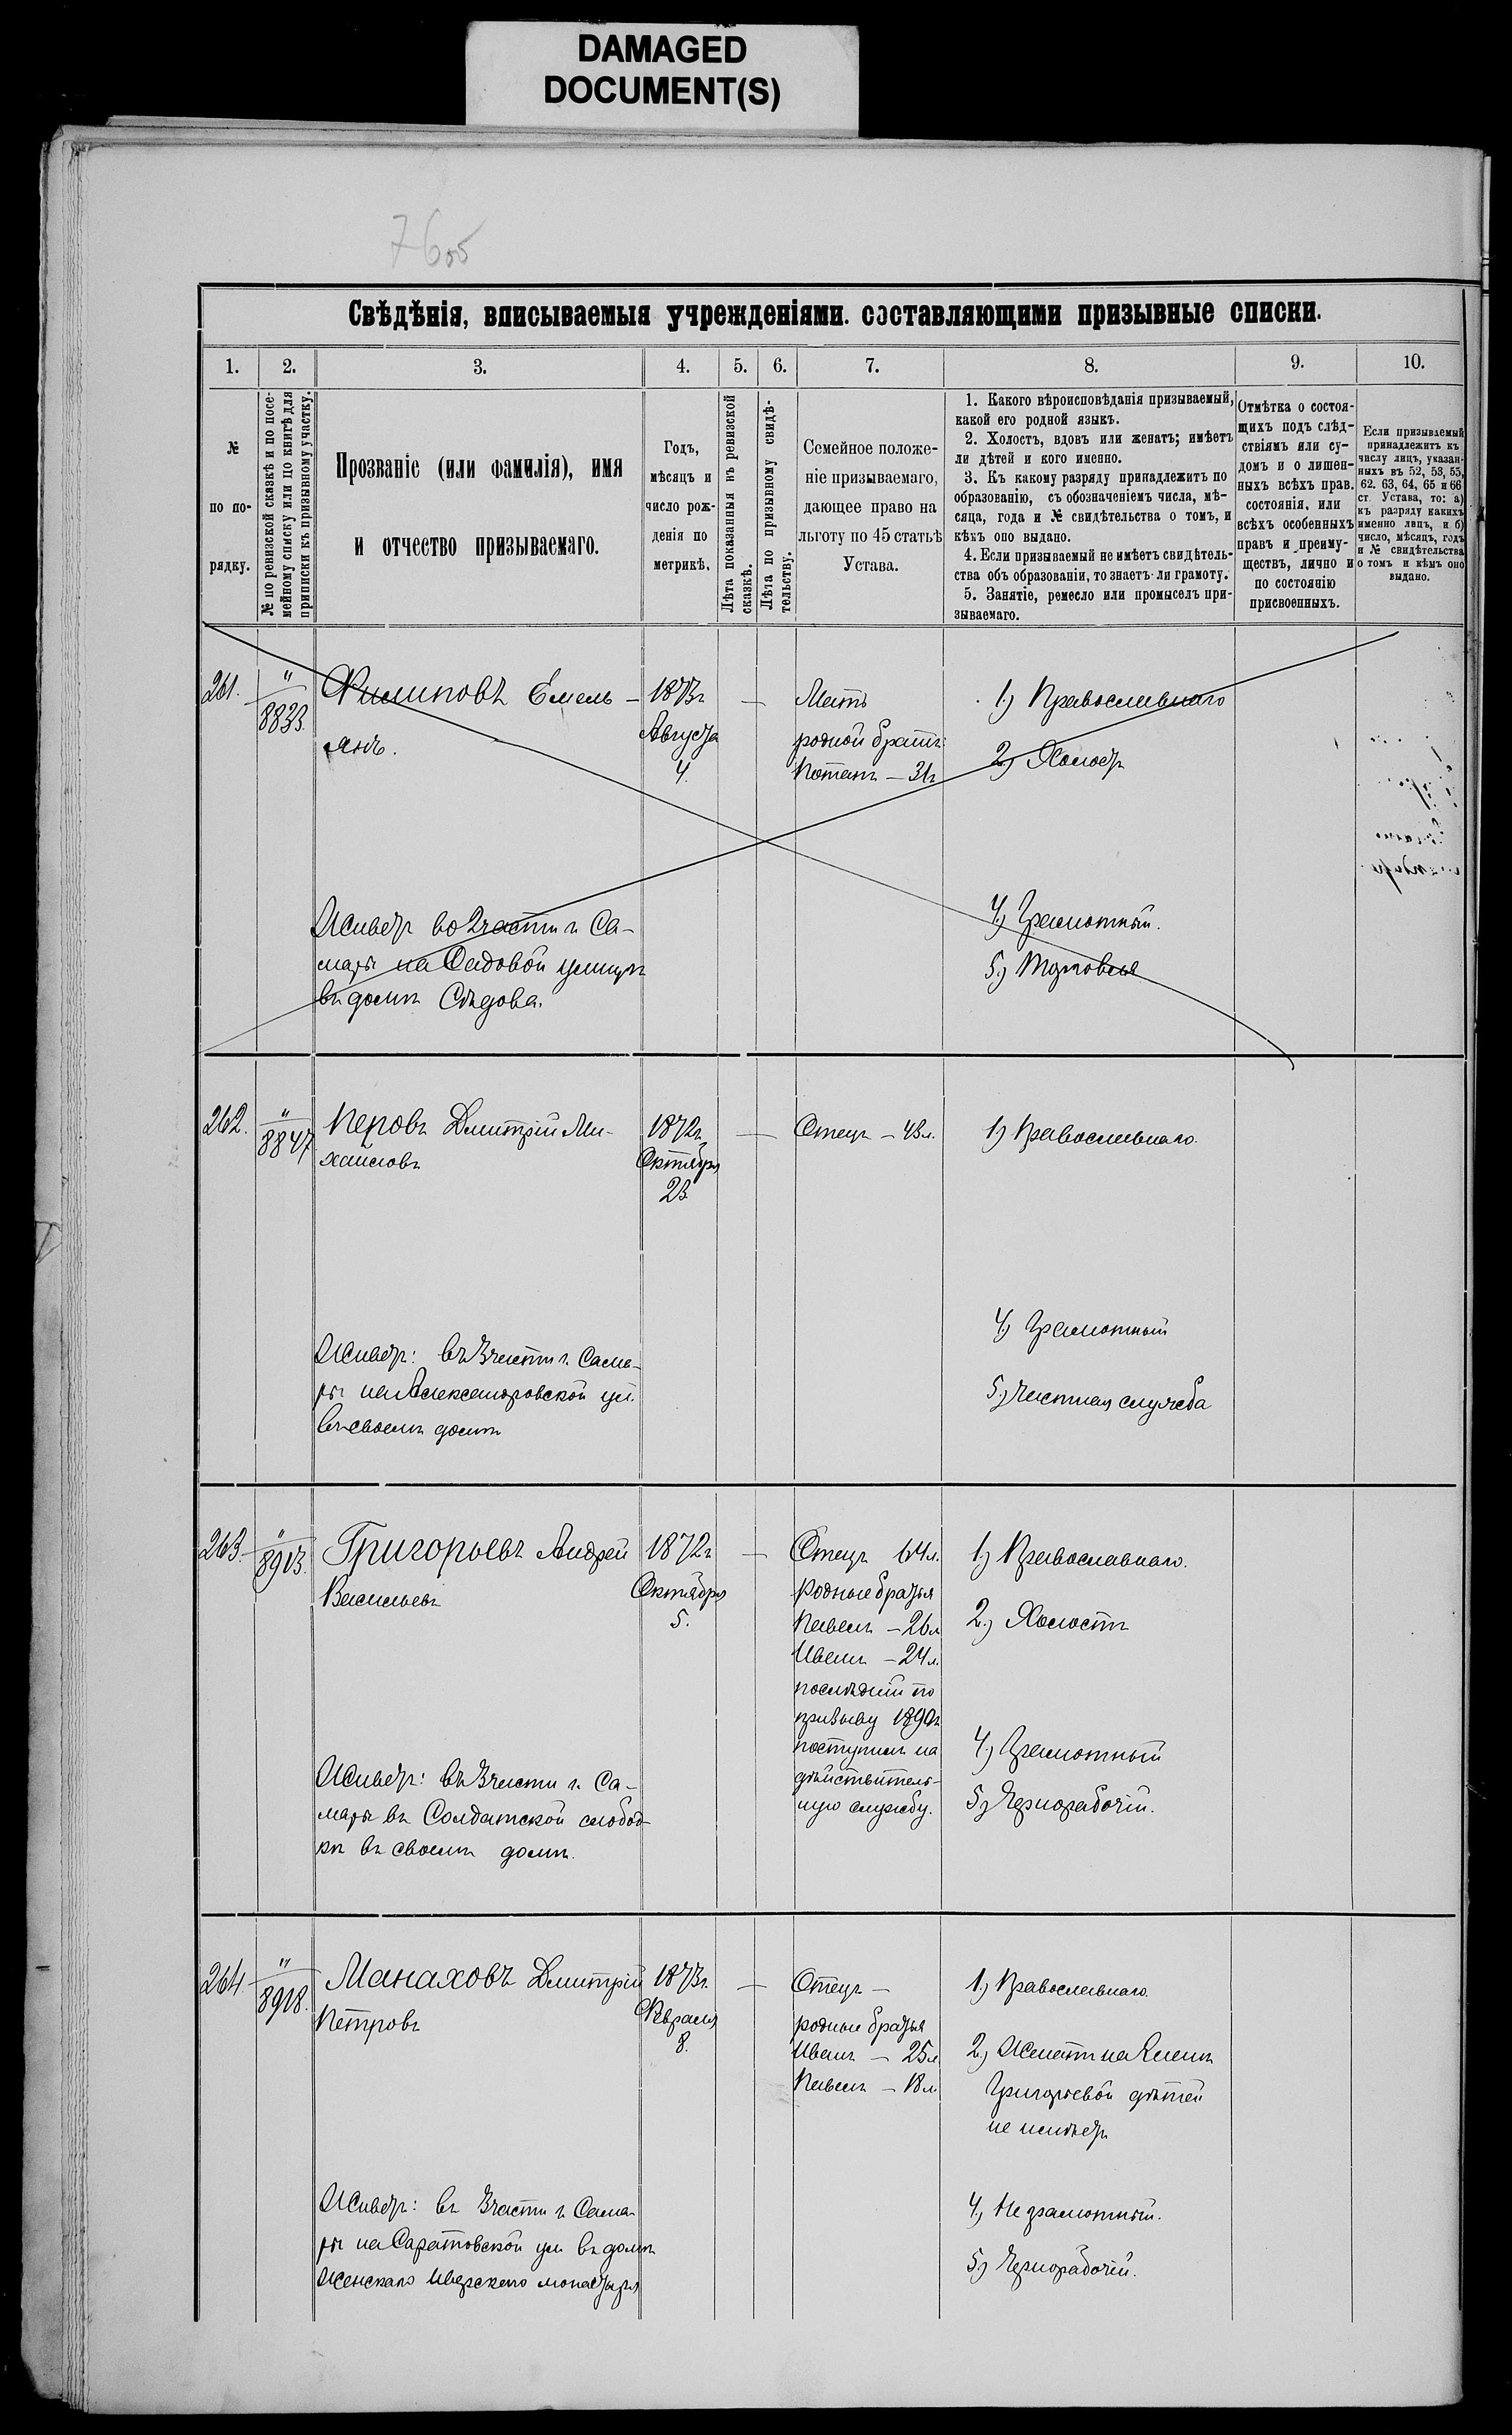 DAMAGED
DOCUMENT(S)
7605
Свѣдѣнія, вписываемыя учрежденіями. составляющими призывные списки.
1.
2.
3.
4.
5.
6.
7.
8.
9.
10.
№
по по-
рядку.
№ по ревизской сказкѣ и по посе-
мейному списку или по книгѣ для
приписки къ призывному участку.
Прозваніе (или фамилія), имя
и отчество призываемаго.
Годъ,
мѣсяцъ и
число рож-
денія по
метрикѣ.
Лѣта показанныя въ ревизской
сказкѣ.
Лѣта по призывному свидѣ-
тельству.
Семейное положе-
ніе призываемаго,
дающее право на
льготу по 45 статьѣ
Устава.
1. Какого вѣроисповѣданія призываемый,
какой его родной языкъ.
2. Холостъ, вдовъ или женатъ; имѣетъ
ли дѣтей и кого именно.
3. Къ какому разряду принадлежитъ по
образованію, съ обозначеніемъ числа, мѣ-
сяца, года и № свидѣтельства о томъ, и
кѣмъ оно выдано.
4. Если призываемый не имѣетъ свидѣтель-
ства объ образованіи, то знаетъ-ли грамоту.
5. Занятіе, ремесло или промыселъ при-
зываемаго.
Отмѣтка о состоя-
щихъ подъ слѣд-
ствіямъ или су-
домъ и о лишен-
ныхъ всѣхъ прав.
состоянія, или
всѣхъ особенныхъ
правъ и преиму-
ществъ, лично и
по состоянію
присвоенныхъ.
Если призываемый
принадлежитъ къ
числу лицъ, указан-
ныхъ въ 52, 53, 55,
62. 63, 64, 65 и 66
ст. Устава, то: а)
къ разряду какихъ
именно лицъ, и б)
число, мѣсяцъ, годъ
и № свидѣтельства
о томъ и кѣмъ оно
выдано.
261.
"
8833.
Филиповъ Емель-
янъ.
1873г
Августа
4.
—
Мать
родной братъ
Потапъ — 31г
1.) Православнаго
2.) Холостъ
4.) Грамотный.
5.) Торговля
Живетъ во 2 части г. Са-
мары на Садовой улицѣ
въ домѣ Сѣдова.
262.
"
8847
Перовъ Дмитрій Ми-
хаиловъ
1872г.
Октября
23
—
Отецъ — 43л.
1.) Православнаго.
4.) Грамотный
5.) Частная служба
Живетъ: въ 3 части г. Сама-
ры на Александровской ул.
въ своемъ домѣ
263.
"
8913.
Григорьевъ Андрей
Васильевъ
1872г
Октября
5.
—
Отецъ 64л.
родные братья
Павелъ — 26л
Иванъ — 24л.
послѣдній по
призыву 1890г
поступилъ на
дѣйствитель-
ную службу.
1.) Православнаго.
2.) Холостъ
4.) Грамотный
5.) Чернорабочій.
Живетъ: въ 3 части г. Са-
мары въ Солдатской слобод-
кѣ въ своемъ домѣ.
264.
"
8918.
Манаховъ Дмитрій
Петровъ
1873г.
Февраля
8.
—
Отецъ —
родные братья
Иванъ — 25л
Павелъ — 18л
1.) Православнаго.
2.) Женатъ на Еленѣ
Григорьевой дѣтей
не имѣетъ
4.) Неграмотный.
5.) Чернорабочій.
Живетъ: въ 3 части г. Сама-
ры на Саратовской ул въ домѣ
Женскаго Иверскаго монастыря